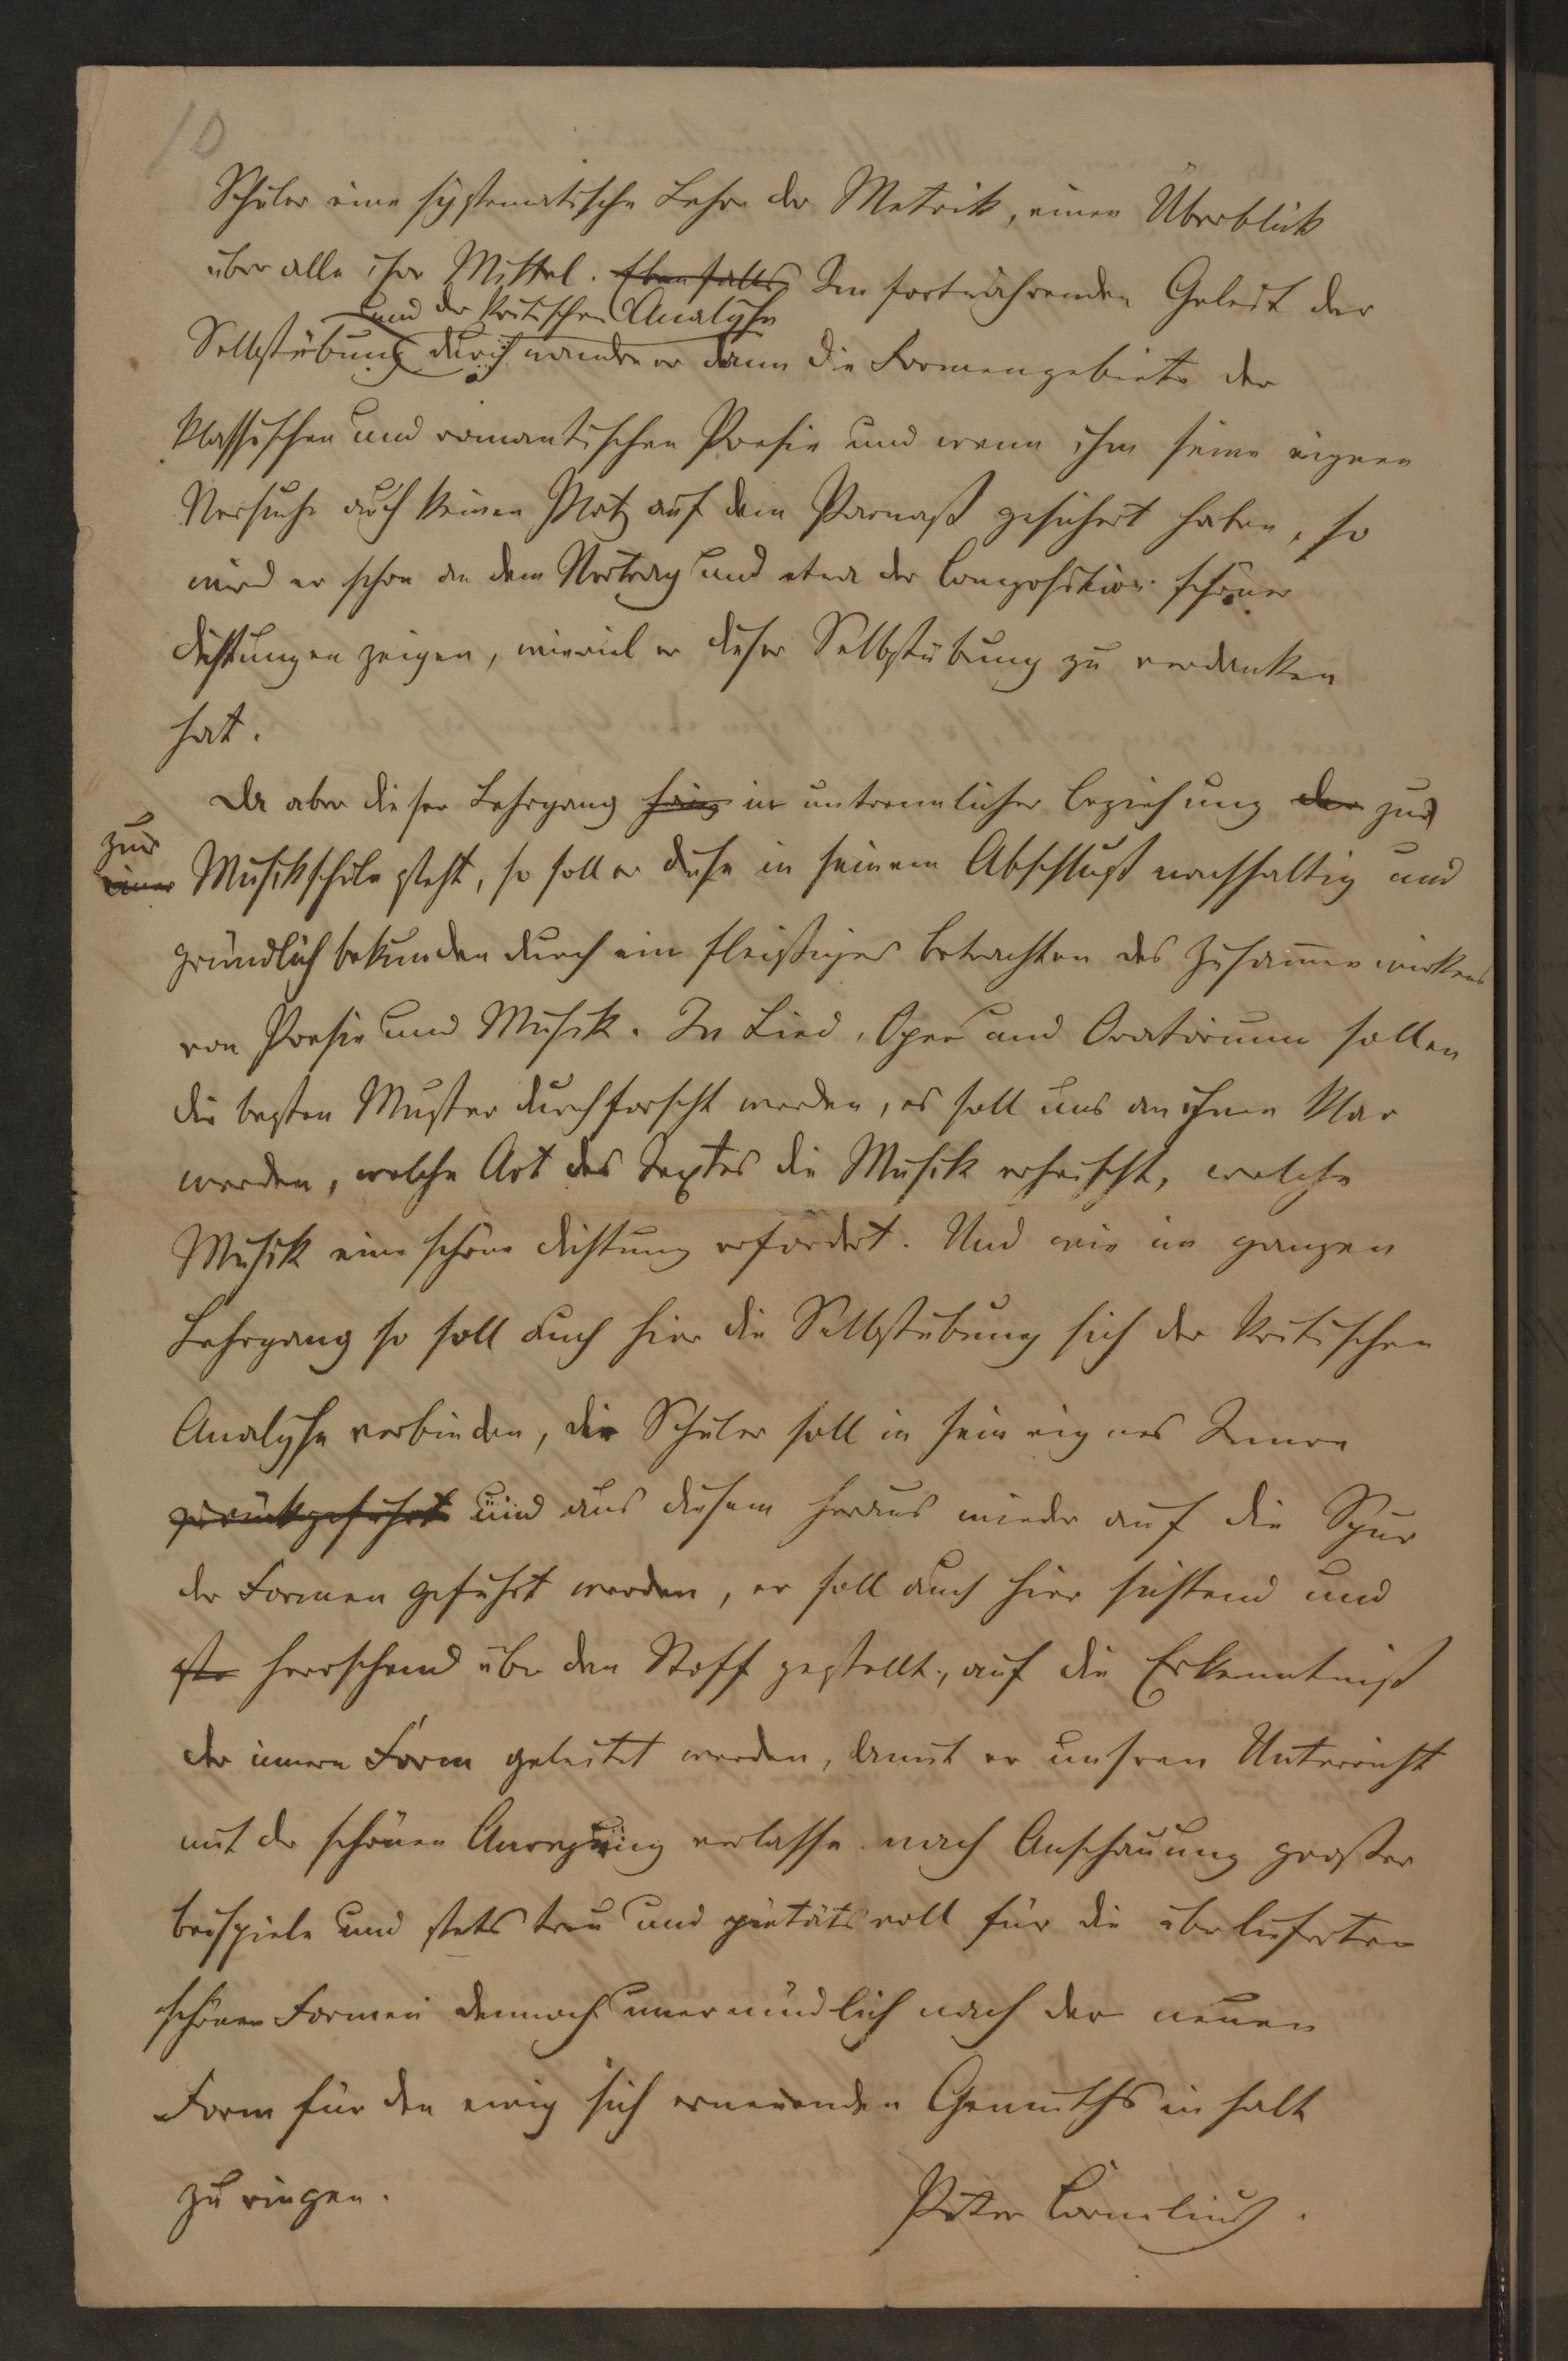 10
Schüler eine systematische Lehre der Metrik, einen Überblick
über alle ihre Mittel. Ebenfalls Im fortwährenden Geleit der
und der kritischen Analyse
Selbstübung durchwandre er dann die Formengebiete der
klassischen und romantischen Poesie und wenn ihm seine eignen
Versuche auch keinen Platz auf dem Parnaß gesichert haben, so
wird er schon an dem Vortrag und etwa der Composition schöner
Dichtungen zeigen, wieviel er dieser Selbstübung zu verdanken
hat.
Da aber dieser Lehrgang hier in untrennlicher Beziehung der zur
zur
einer Musikschule steht, so soll er diese in seinem Abschluß nachhaltig und
gründlich bekunden durch ein fleißiges Betrachten des Zusammenwirkens
von Poesie und Musik. In Lied, Oper und Oratorium sollen
die besten Muster durchforscht werden, es soll uns an ihnen klar
werden, welche Art des Textes die Musik erheischt, welche
Musik eine schöne Dichtung erfordert. Und wie im ganzen
Lehrgang so soll auch hier die Selbstübung sich der kritischen
Analyse verbinden, der Schüler soll in sein eignes Innre
zurückgeführt und aus diesem heraus wieder auf die Spur
der Formen geführt werden, er soll auch hier sichtend und
herrschend über den Stoff gestellt, auf die Erkenntniß
der innern Form geleitet werden, damit er unsren Unterricht
mit der schönen Anregung verlasse nach Anschauung großer
Beispiele und stets treu und pietätsvoll für die überlieferten
schönen Formen dennoch unermüdlich nach der neuen
Form für den ewig sich erneuenden Gemüthsinhalt
zu ringen.
Peter Cornelius.